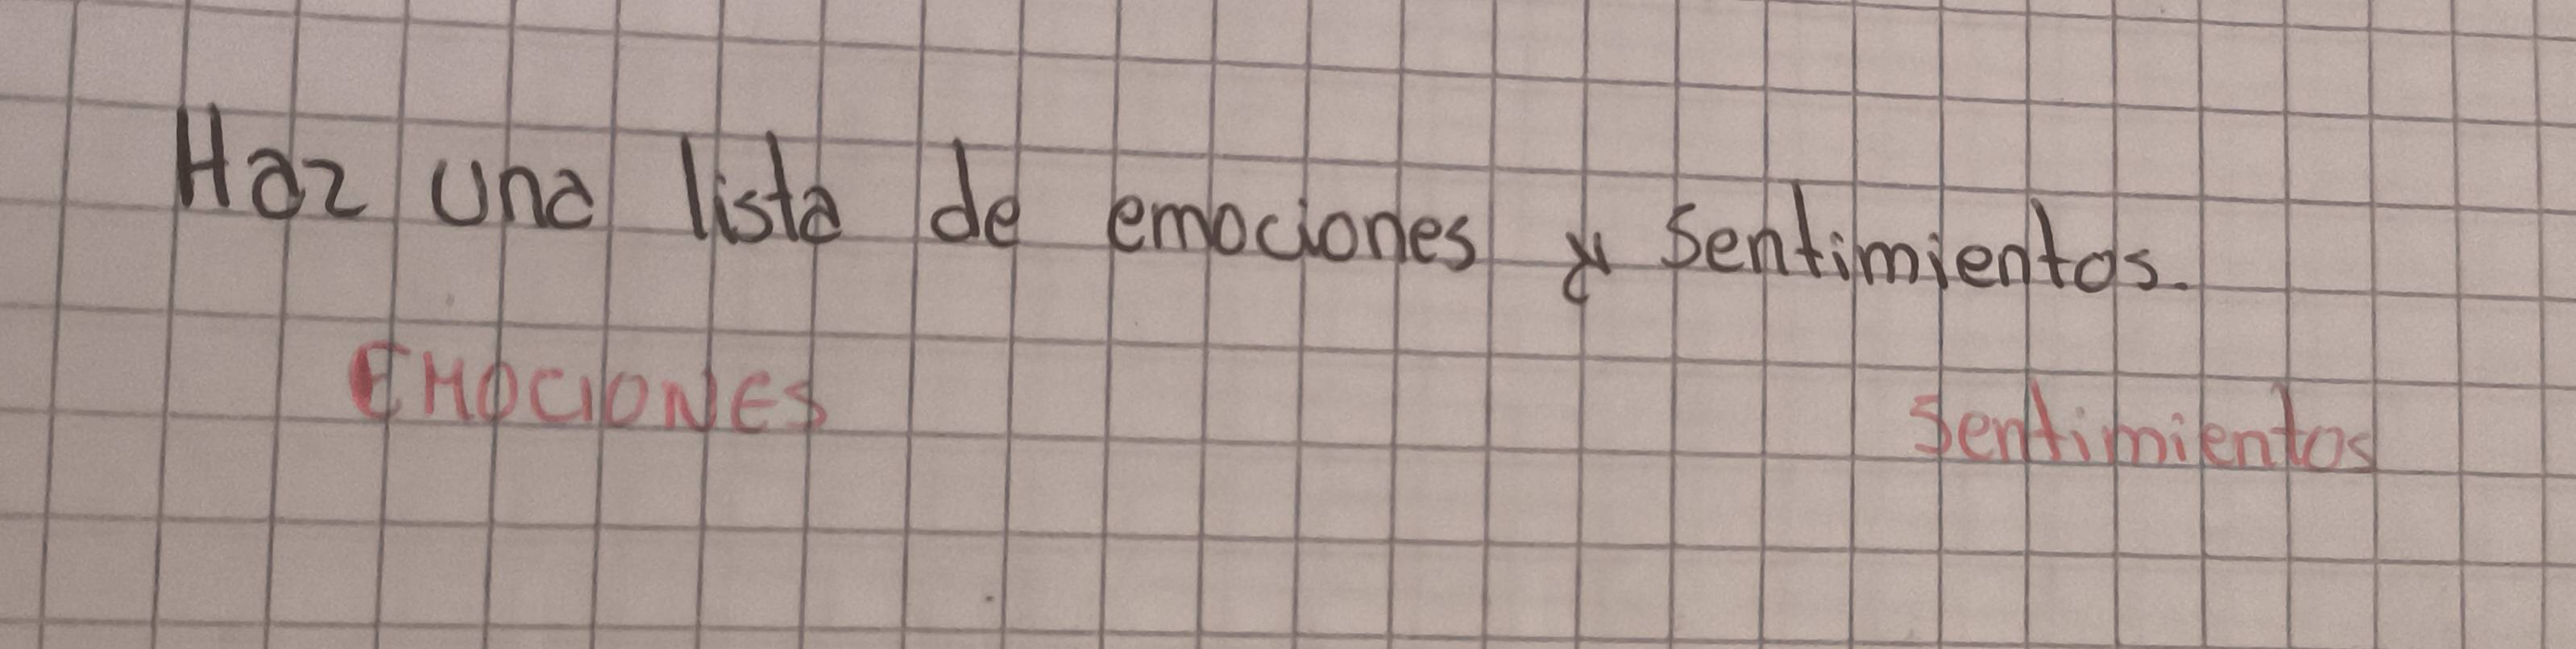 Haz una lista de emociones y sentimientos.
EMOCIONES
Sentimientos